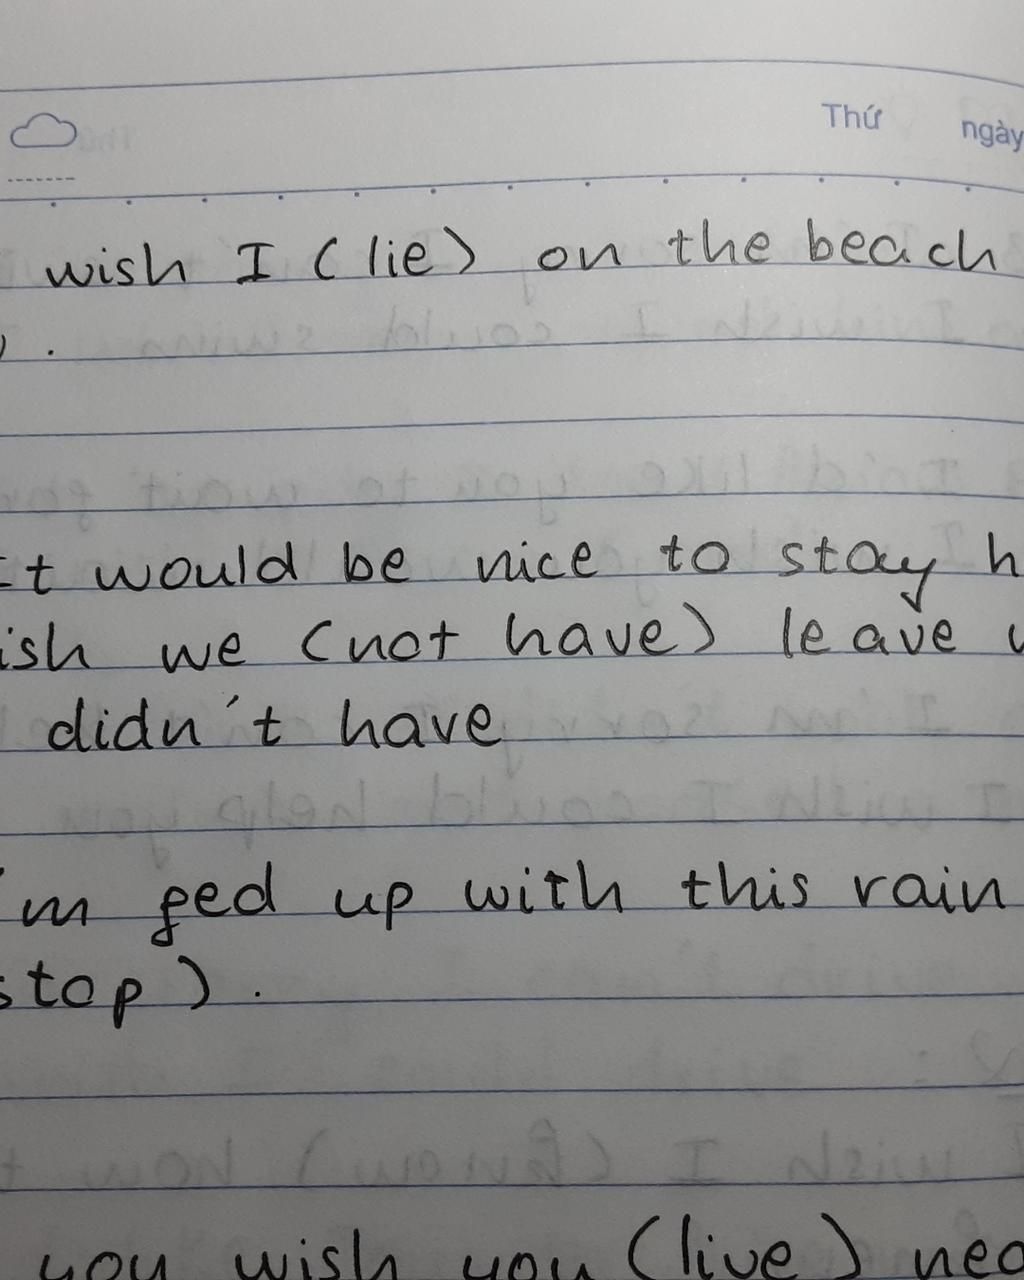 Thứ ngày
wish I (lie) on the beach
) .
would be nice to stay
we (not have) leave
didn't have
fed up with this rain
stop) .
you wish you (live)